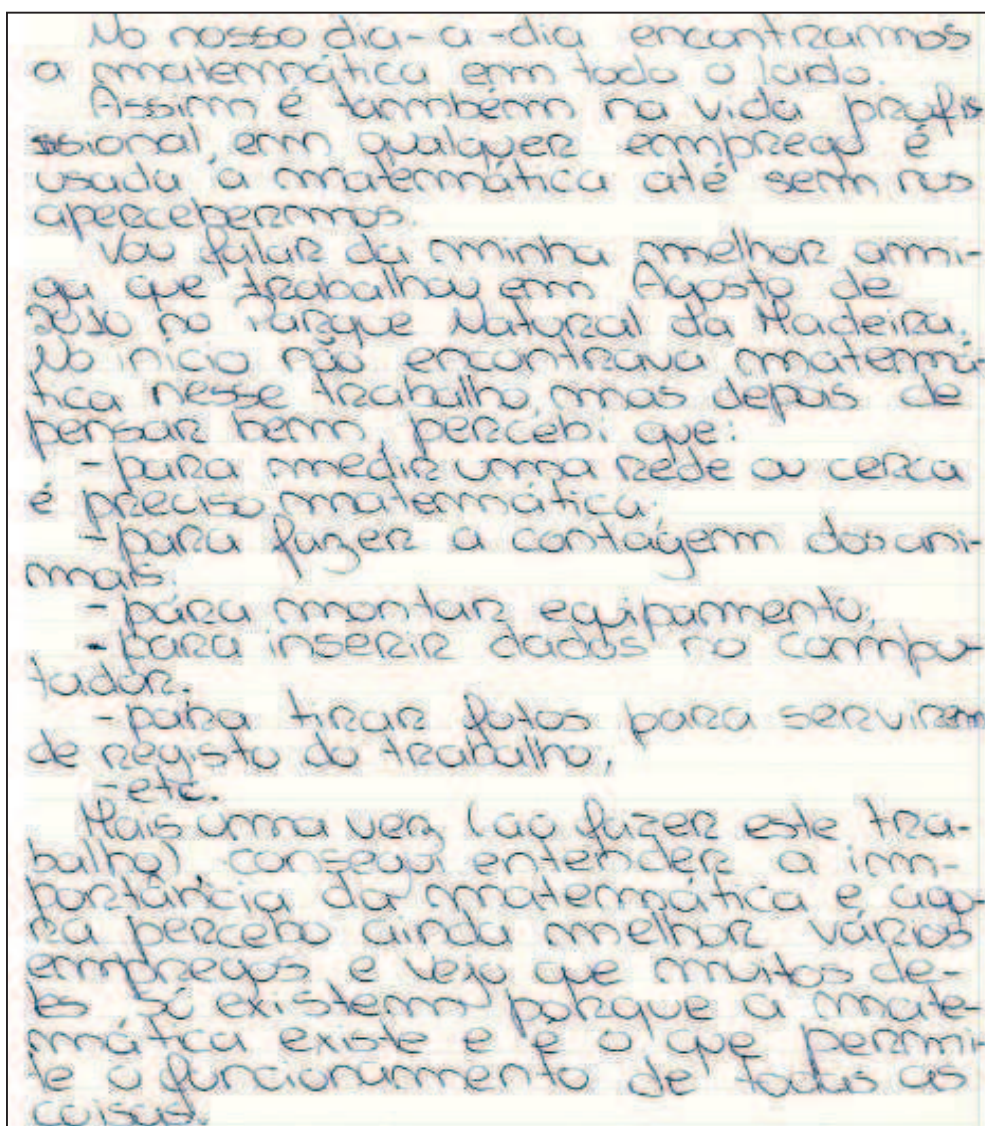 No nosso dia-a-dia encontramos
a matemática em todo o lado.
Assim é também na vida profis
ssional, em qualquer emprego é
usada a matemática até sem nos
apercebermos.
Vou falar da minha melhor ami-
ga que trabalhou em Agosto de
2010 no Parque Natural da Madeira.
No início não encontrava matemá-
tica nesse trabalho, mas depois de
pensar bem, percebi que:
- para medir uma rede ou cerca
é preciso matemática;
- para fazer a contagem dos ani-
mais;
- para montar equipamento;
- para inserir dados no compu-
tador;
- para tirar fotos para servirem
de registo do trabalho;
- etc.
Mais uma vez (ao fazer este tra-
balho) consegui entender a im-
portância da matemática e ago-
ra percebo ainda melhor vários
empregos e vejo que muitos de-
les só existem porque a mate-
mática existe e é o que permi-
te o funcionamento de todas as
coisas.